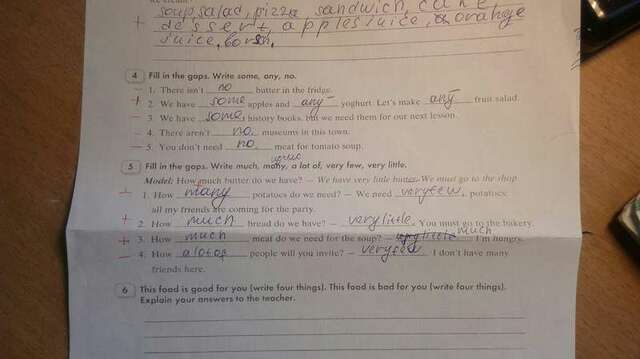 soup, salad, pizza, sandwich, cake
+ dessert, apples juice, orange
juice, borsh.
4 Fill in the gaps. Write some, any, no.
– 1. There isn't no butter in the fridge.
+ 2. We have some apples and any yoghurt. Let's make any fruit salad.
– 3. We have some history books, but we need them for our next lesson.
– 4. There aren't no museums in this town.
– 5. You don't need no. meat for tomato soup.
5 Fill in the gaps. Write much, many, a lot of, very few, very little.
Model: How much butter do we have? – We have very little butter. We must go to the shop.
+ 1. How many potatoes do we need? – We need very few, potatoes:
all my friends are coming for the party.
+ 2. How much bread do we have? – very little. You must go to the bakery.
+ 3. How much meat do we need for the soup? – much I'm hungry.
– 4. How a lot of people will you invite? – very few I don't have many
friends here.
6 This food is good for you (write four things). This food is bad for you (write four things).
Explain your answers to the teacher.